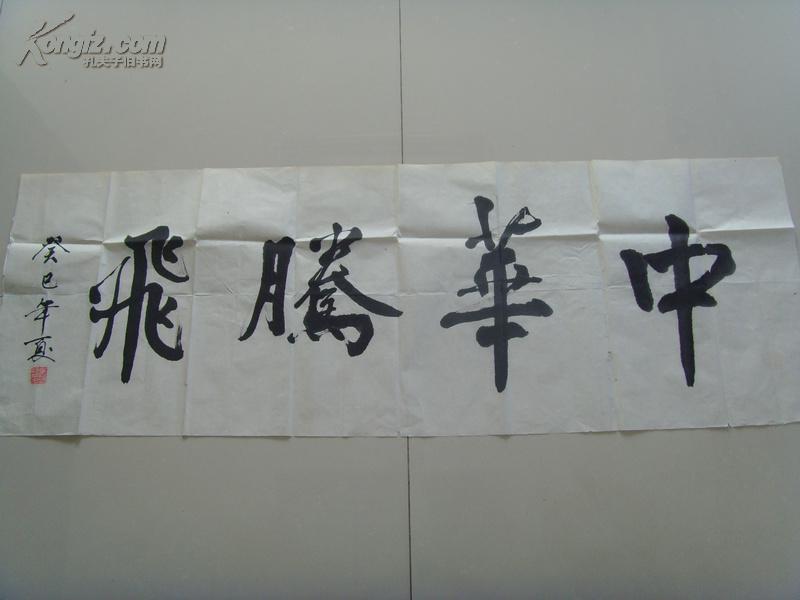 中華騰飛
癸巳年夏
Kongfz.com
孔夫子旧书网